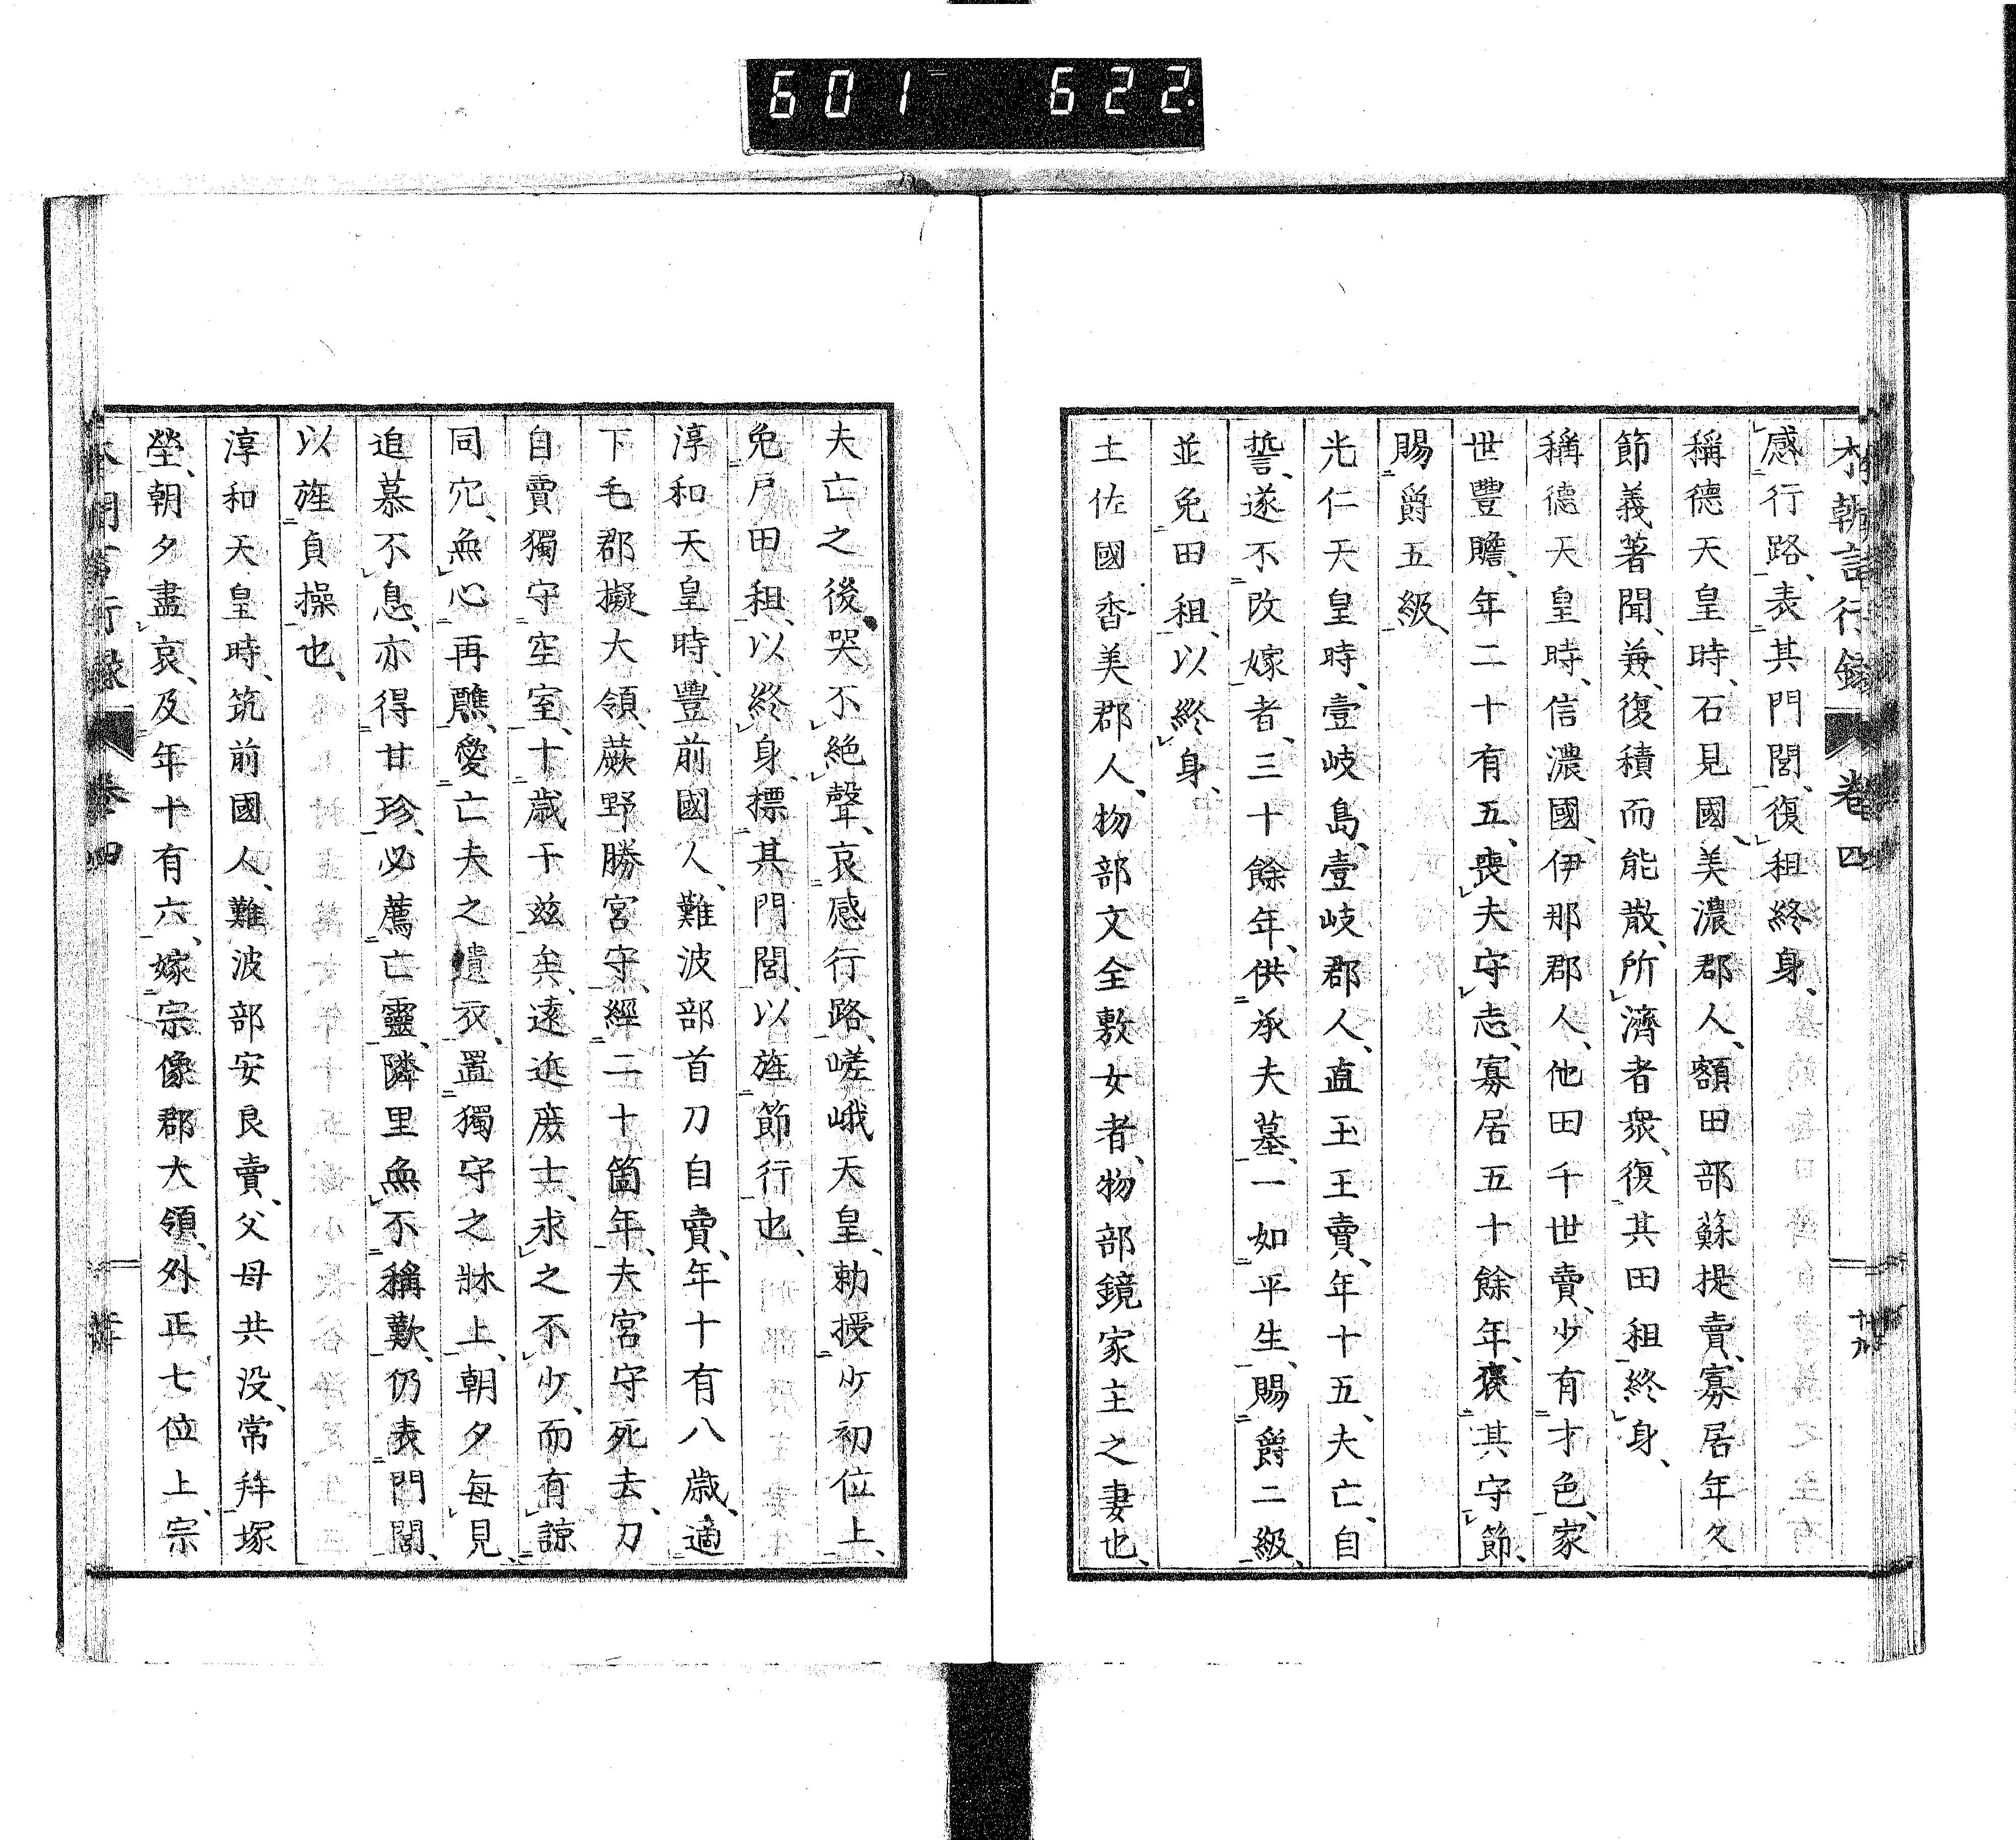 601 622
感行路、表其門閭、復租終身、
稱德天皇時、石見國、美濃郡人、額田部蘇提賣、寡居年久
節義著聞、兼復積而能散、所濟者衆、復其田租終身、
稱德天皇時、信濃國、伊那郡人、他田千世賣、少有才色、家
世豐贍、年二十有五、喪夫守志、寡居五十餘年、褒其守節、
賜爵五級、
光仁天皇時、壹岐島、壹岐郡人、直玉王賣、年十五、夫亡、自
誓、遂不改嫁者、三十餘年、供承夫墓、一如平生、賜爵二級、
並免田租、以終身、
土佐國香美郡人、物部文全敷女者、物部鏡家主之妻也、
夫亡之後、哭不絶聲、哀感行路、嵯峨天皇、勅授少初位上、
免戸田租、以終身、標其門閭、以旌節行也、
淳和天皇時、豐前國人、難波部首刀自賣、年十有八歳、適
下毛郡擬大領、蕨野勝宮守、經二十箇年、夫宮守死去、刀
自賣獨守空室、十歳于兹矣、遠近庶士、求之不少、而有諒
同穴、無心再醮、愛亡夫之遺衣、置獨守之牀上、朝夕每見、
追慕不息、亦得甘珍、必薦亡靈、隣里無不稱歎、仍表門閭、
以旌貞操也、
淳和天皇時、筑前國人、難波部安良賣、父母共没、常拜塚
塋、朝夕盡哀、及年十有六、嫁宗像郡大領、外正七位上、宗